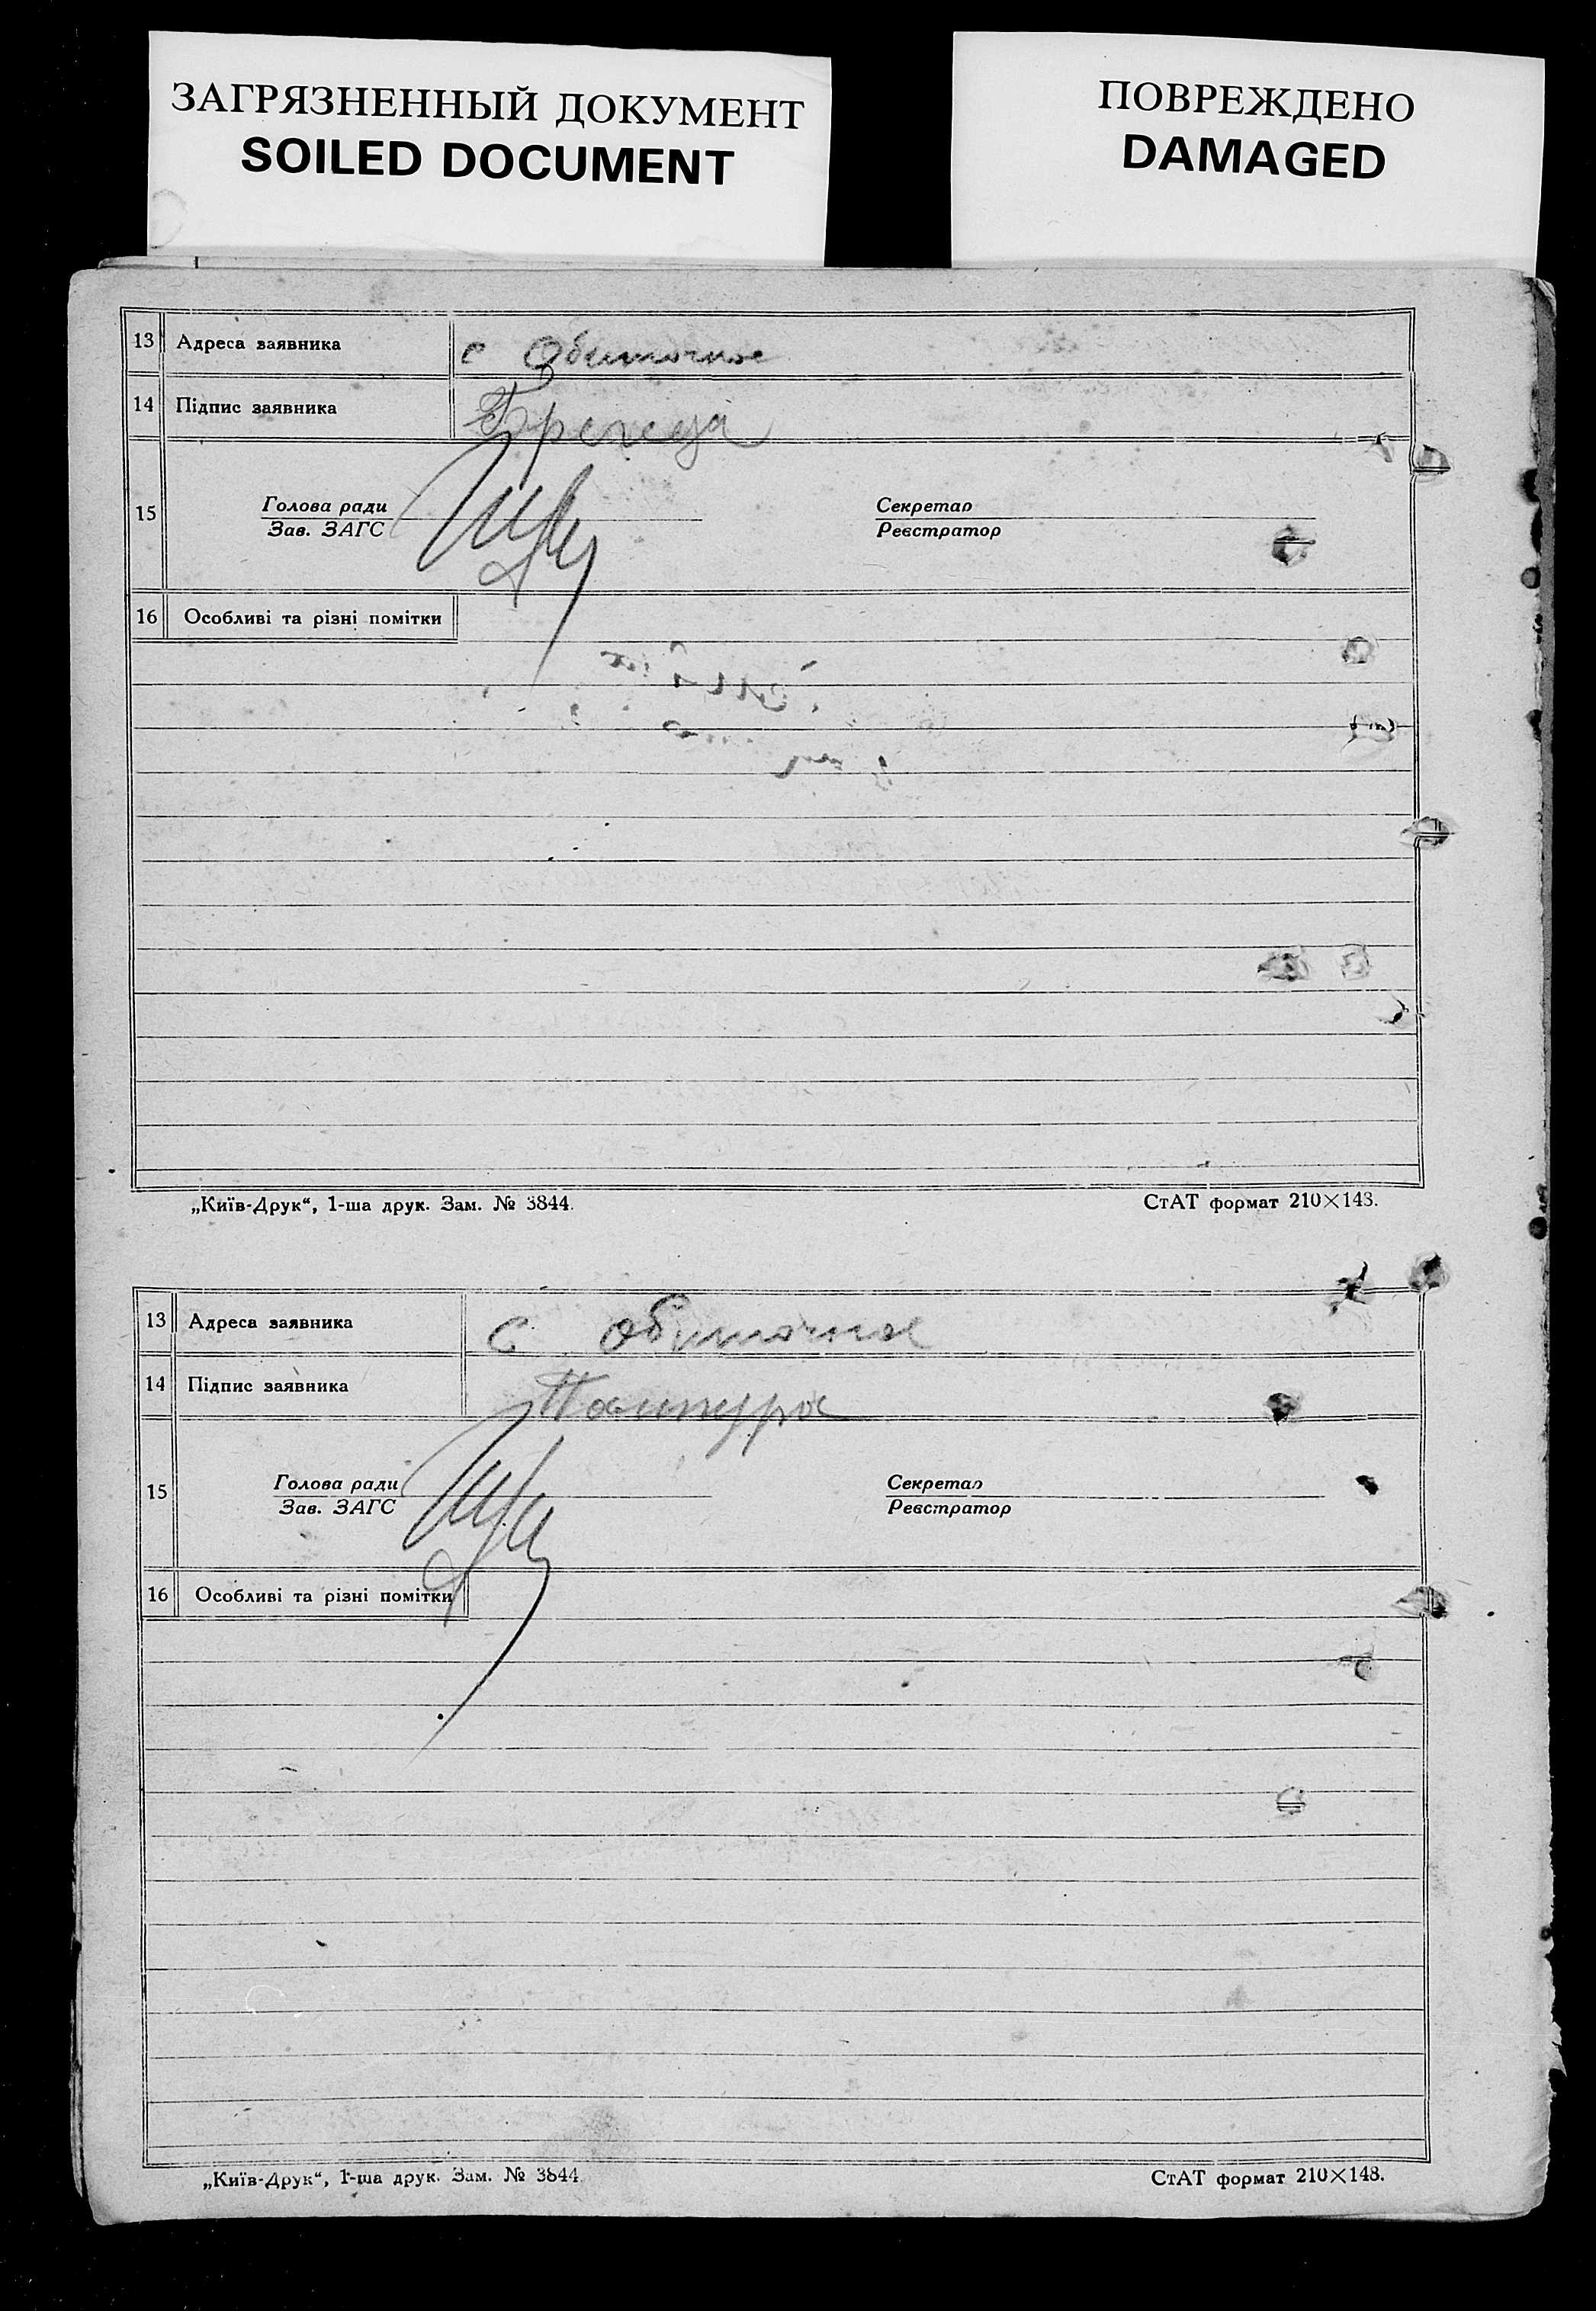 ЗАГРЯЗНЕННЫЙ ДОКУМЕНТ
SOILED DOCUMENT
ПОВРЕЖДЕНО
DAMAGED
13 Адреса заявника с Обиточное
14 Підпис заявника
15 Голова ради Секретар
Зав. ЗАГС Реєстратор
16 Особливі та різні помітки
„Київ-Друк“, 1-ша друк. Зам. № 3844. СтАТ формат 210×143.
13 Адреса заявника с Обиточное
14 Підпис заявника
15 Голова ради Секретар
Зав. ЗАГС Реєстратор
16 Особливі та різні помітки
„Київ-Друк“, 1-ша друк. Зам. № 3844 СтАТ формат 210×148.